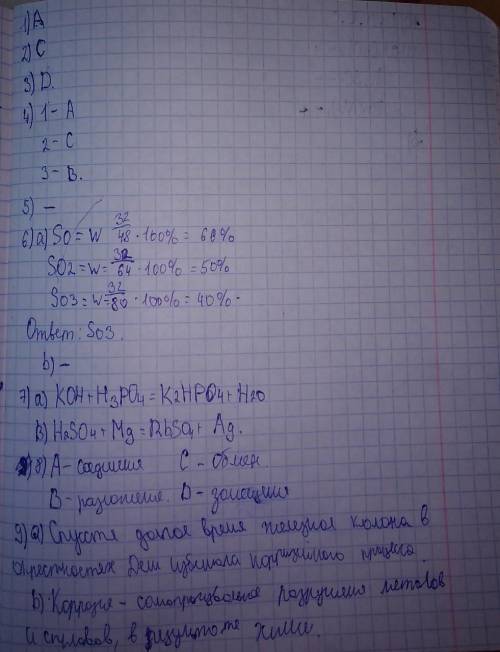 1) A
2) C
3) D.
4) 1 - A
2 - C
3 - B.
5) -
6) a) SO = W 32/48 · 100% = 66%
SO2 = W = 32/64 · 100% = 50%
SO3 = W = 32/80 · 100% = 40%
Ответ: SO3.
b) -
7) a) KOH + H3PO4 = K2HPO4 + H2O
B) H2SO4 + Mg = RbSO4 + Ag.
8) A - соединия C - Обмен
B - разложение. D - замещия
9) a) Спустя долгое время железная колона в
окрестностях Дели избижала коррзийного процеса.
b) Коррозия - самопроизвольное разрушия металов
и сплавов, в результате химие.